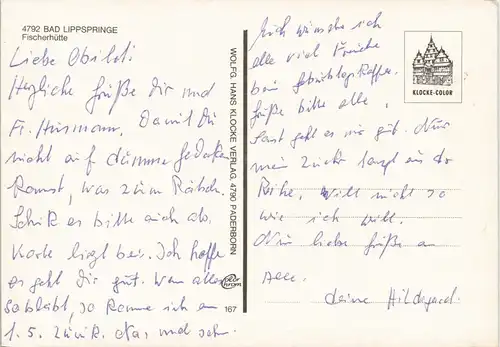 4792 BAD LIPPSPRINGE
Fischerhütte
Liebe Obil
Herzliche Grüße dir und
Fr. Husmann. Damit Du
nicht auf dumme Gedanken
kommst, was zum Rätseln.
Schick es bitte auch ab.
Karte liegt bei. Ich hoffe
es geht dir gut. Wenn alles
so bleibt, so komme ich am
1. 5. zurück. Na, und
WOLFG. HANS KLOCKE VERLAG, 4790 PADERBORN
color chrom
167
KLOCKE-COLOR
Auch wünsche ich
alle viel Freude
beim Geburtstagskaffee.
Grüße bitte alle,
Sonst geht es mir gut. Nur
mein Zucker tanzt aus der
Reihe, will nicht so
wie ich will.
Nun liebe Grüße an
Alle.
deine Hildegard.